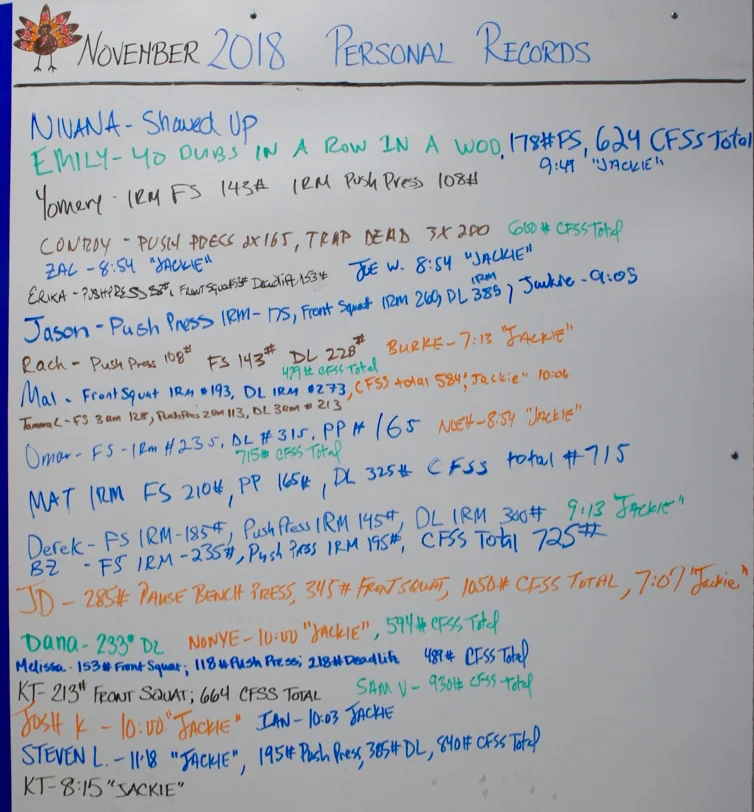 NOVEMBER 2018 PERSONAL RECORDS
NIVANA - Showed UP
EMILY - 40 DUBS IN A ROW IN A WOD, 178# FS, 624 CFSS Total
9:49 "JACKIE"
Yomery - 1RM FS 143# 1RM Push Press 108#
CONROY - PUSH PRESS 2x165, TRAP DEAD 3x280 660# CFSS Total
ZAC - 8:54 "JACKIE" JOE W. 8:54 "JACKIE"
ERIKA - PUSH PRESS 88#, Front Squat 83# Deadlift 153#
Jason - Push Press 1RM - 175, Front Squat 1RM 260, DL 1RM 385, Jackie - 9:05
Rach - Push Press 108# FS 143# DL 228# BURKE - 7:13 "JACKIE"
479# CFSS Total
Mal - Front Squat 1RM #193, DL 1RM #273, CFSS total 584; "Jackie" 10:06
Tamara L - FS 3RM 128, Push Press 2RM 113, DL 3RM # 213
Omar - FS - 1RM #235, DL #315, PP # 165 NOEH - 8:54 "JACKIE"
715# CFSS Total
MAT 1RM FS 210#, PP 165#, DL 325# CFSS total #715
Derek - FS 1RM - 185#, Push Press 1RM 145#, DL 1RM 300# 9:13 "JACKIE"
BZ - FS 1RM - 235#, Push Press 1RM 195#, CFSS Total 725#
JD - 285# PAUSE BENCH PRESS, 345# FRONT SQUAT, 1050# CFSS TOTAL, 7:07 "Jackie"
Dana - 233# DL NONYE - 10:00 "JACKIE", 594# CFSS Total
Melissa - 153# Front Squat; 118# Push Press; 218# Deadlift 489# CFSS Total
KJ - 213# FRONT SQUAT; 664 CFSS TOTAL SAM V - 930# CFSS Total
JOSH K - 10:00 "JACKIE" IAN - 10:03 JACKIE
STEVEN L. - 11:18 "JACKIE", 195# Push Press, 385# DL, 840# CFSS Total
KT - 8:15 "JACKIE"